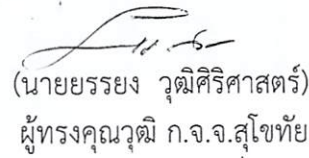 (นายยรรยง วุฒิศิริศาสตร์)
ผู้ทรงคุณวุฒิ ก.จ.จ.สุโขทัย